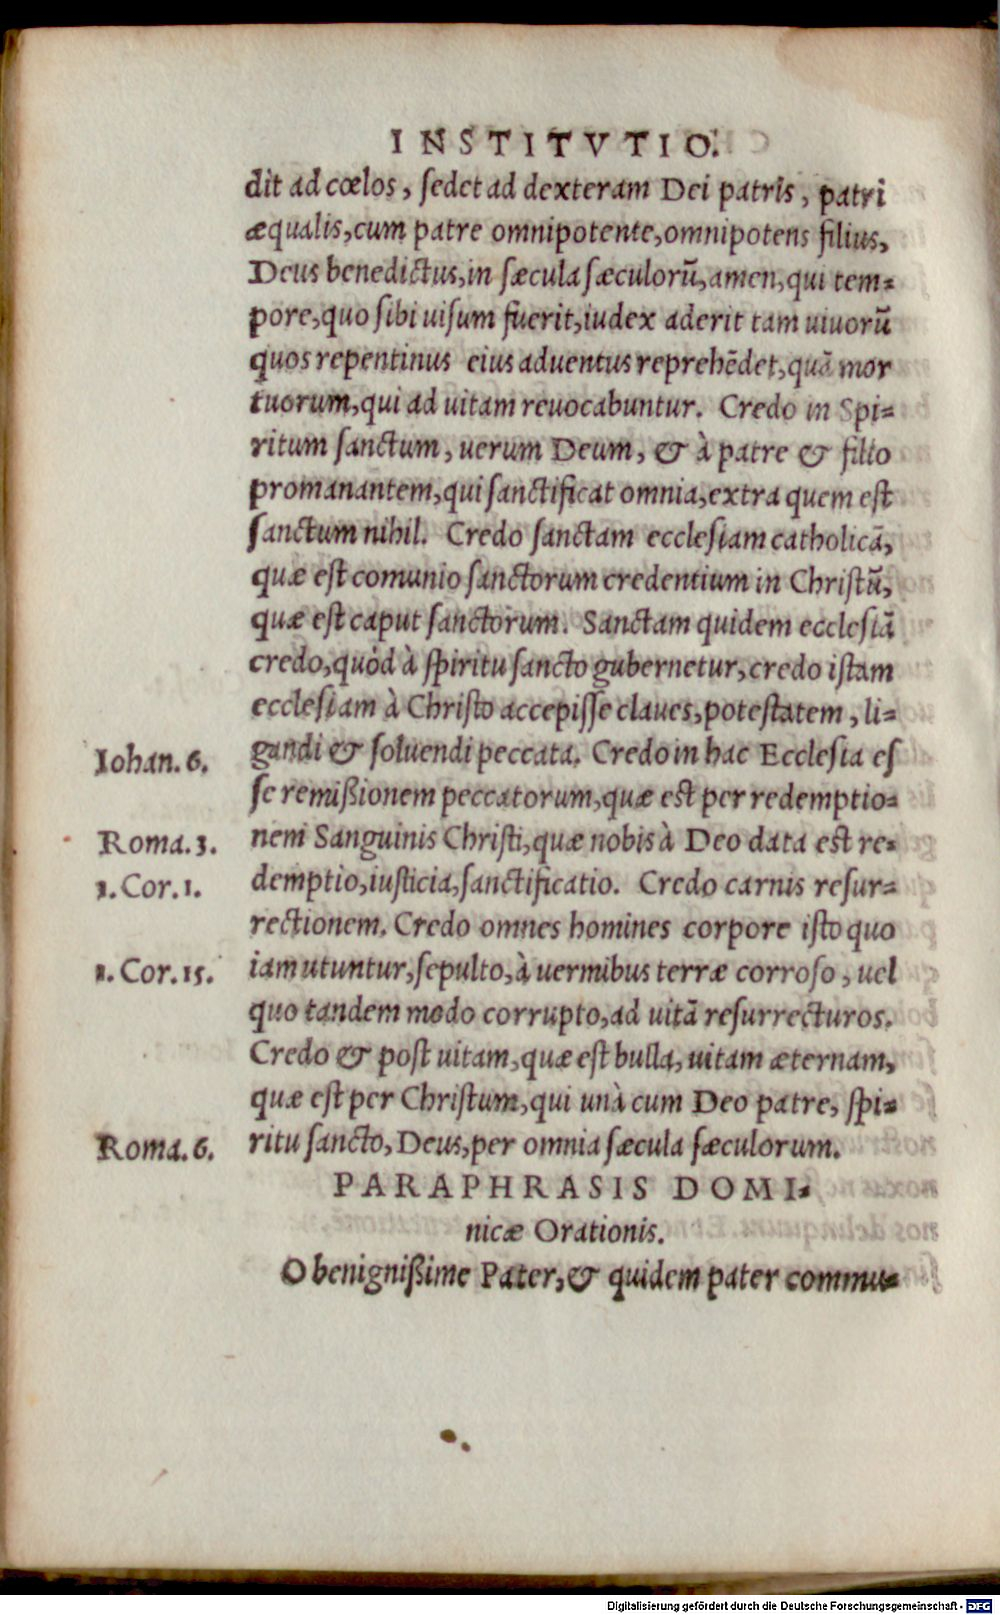 INSTITVTIO.
dit ad cœlos, sedet ad dexteram Dei patris, patri
æqualis, cum patre omnipotente, omnipotens filius,
Deus benedictus, in sæcula sæculorũ, amen, qui tem-
pore, quo sibi uisum fuerit, iudex aderit tam uiuorũ
quos repentinus eius aduentus reprehẽdet, quã mor
tuorum, qui ad uitam reuocabuntur. Credo in Spi-
ritum sanctum, uerum Deum, & à patre & filio
promanantem, qui sanctificat omnia, extra quem est
sanctum nihil. Credo sanctam ecclesiam catholicã,
quæ est comunio sanctorum credentium in Christũ,
quæ est caput sanctorum. Sanctam quidem ecclesiã
credo, quòd à spiritu sancto gubernetur, credo istam
ecclesiam à Christo accepisse claues, potestatem, li-
Iohan. 6. gandi & soluendi peccata. Credo in hac Ecclesia es
se remißionem peccatorum, quæ est per redemptio-
Roma. 3. nem Sanguinis Christi, quæ nobis à Deo data est re-
1. Cor. 1. demptio, iusticia, sanctificatio. Credo carnis resur-
rectionem. Credo omnes homines corpore isto quo
1. Cor. 15. iam utuntur, sepulto, à uermibus terræ corroso, uel
quo tandem modo corrupto, ad uitã resurrecturos.
Credo & post uitam, quæ est bulla, uitam æternam,
quæ est per Christum, qui unà cum Deo patre, spi-
Roma. 6. ritu sancto, Deus, per omnia sæcula sæculorum.
PARAPHRASIS DOMI-
nicæ Orationis.
O benignißime Pater, & quidem pater commu-
Digitalisierung gefördert durch die Deutsche Forschungsgemeinschaft - DFG